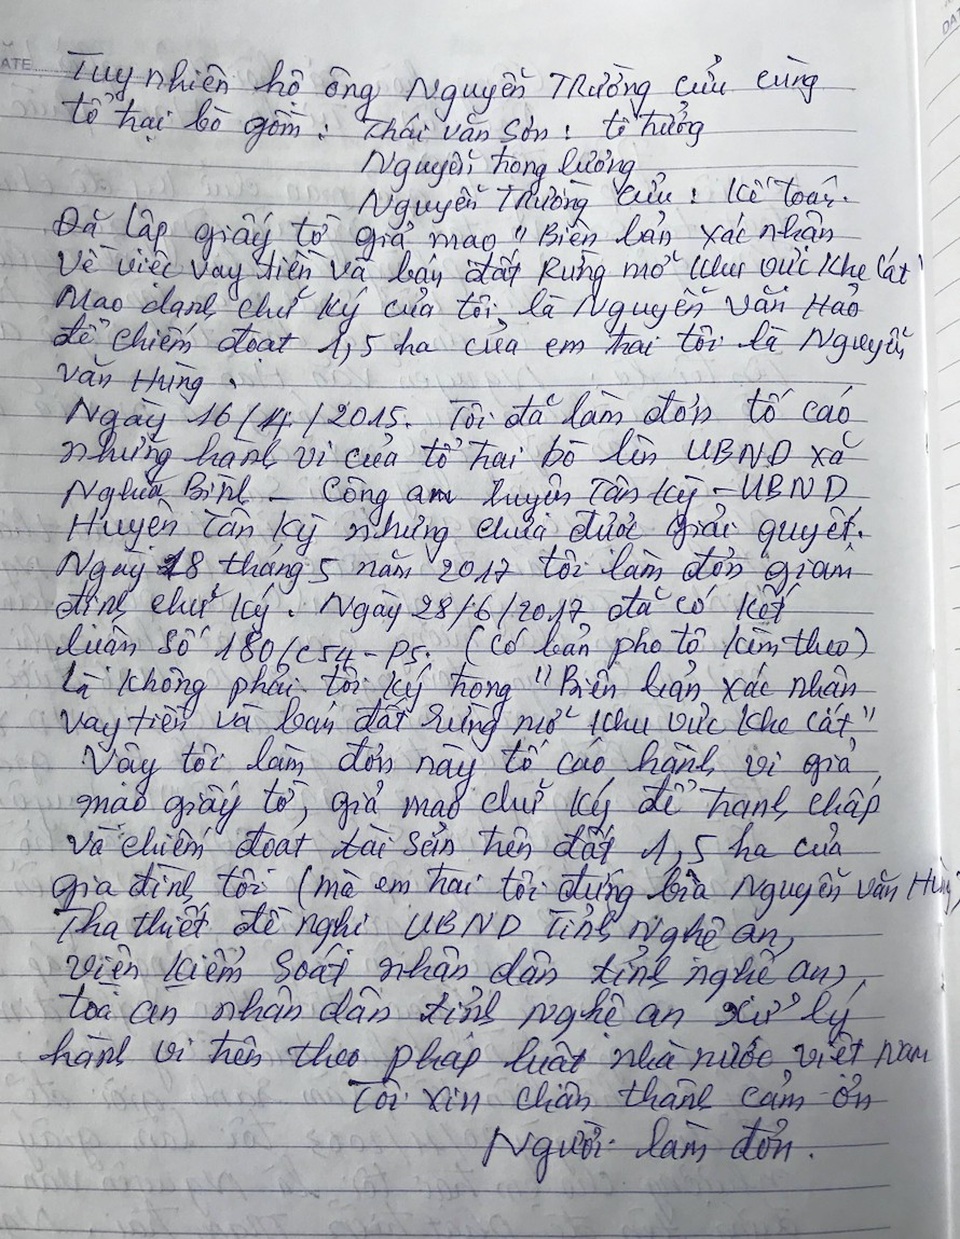 ATE
Tuy nhiên hộ ông Nguyễn Trường Cửu cùng
tổ hai bò gồm: Thái Văn Sơn: tổ trưởng
Nguyễn trọng lương
Nguyễn Trường Cửu: Kế toán.
Đã lập giấy tờ giả mạo "Biên bản xác nhận
Về việc vay tiền và bán đất Rừng mở khu vực Khe Cát"
Mạo danh chữ ký của tôi là Nguyễn Văn Hảo
để chiếm đoạt 1,5 ha của em trai tôi là Nguyễn
Văn Hùng.
Ngày 16/4/2015. Tôi đã làm đơn tố cáo
những hành vi của tổ hai bò lên UBND xã
Nghĩa Bình - Công an huyện Tân Kỳ - UBND
Huyện Tân Kỳ nhưng chưa được giải quyết.
Ngày 18 tháng 5 năm 2017 tôi làm đơn giám
định chữ ký. Ngày 28/6/2017 đã có kết
luận Số 180/C54-P5. (Có bản pho tô kèm theo)
Là không phải tôi ký trong "Biên bản xác nhận
vay tiền và bán đất rừng mở khu vực Khe Cát"
Vậy tôi làm đơn này tố cáo hành vi giả
mạo giấy tờ, giả mạo chữ ký để tranh chấp
và chiếm đoạt tài sản trên đất 1,5 ha của
gia đình tôi (mà em trai tôi đứng bìa Nguyễn Văn Hùng)
Tha thiết đề nghị UBND Tỉnh Nghệ an,
viện kiểm soát nhân dân tỉnh nghệ an,
toà án nhân dân tỉnh Nghệ an xử lý
hành vi trên theo pháp luật nhà nước việt Nam
Tôi xin chân thành cảm ơn
Người làm đơn.